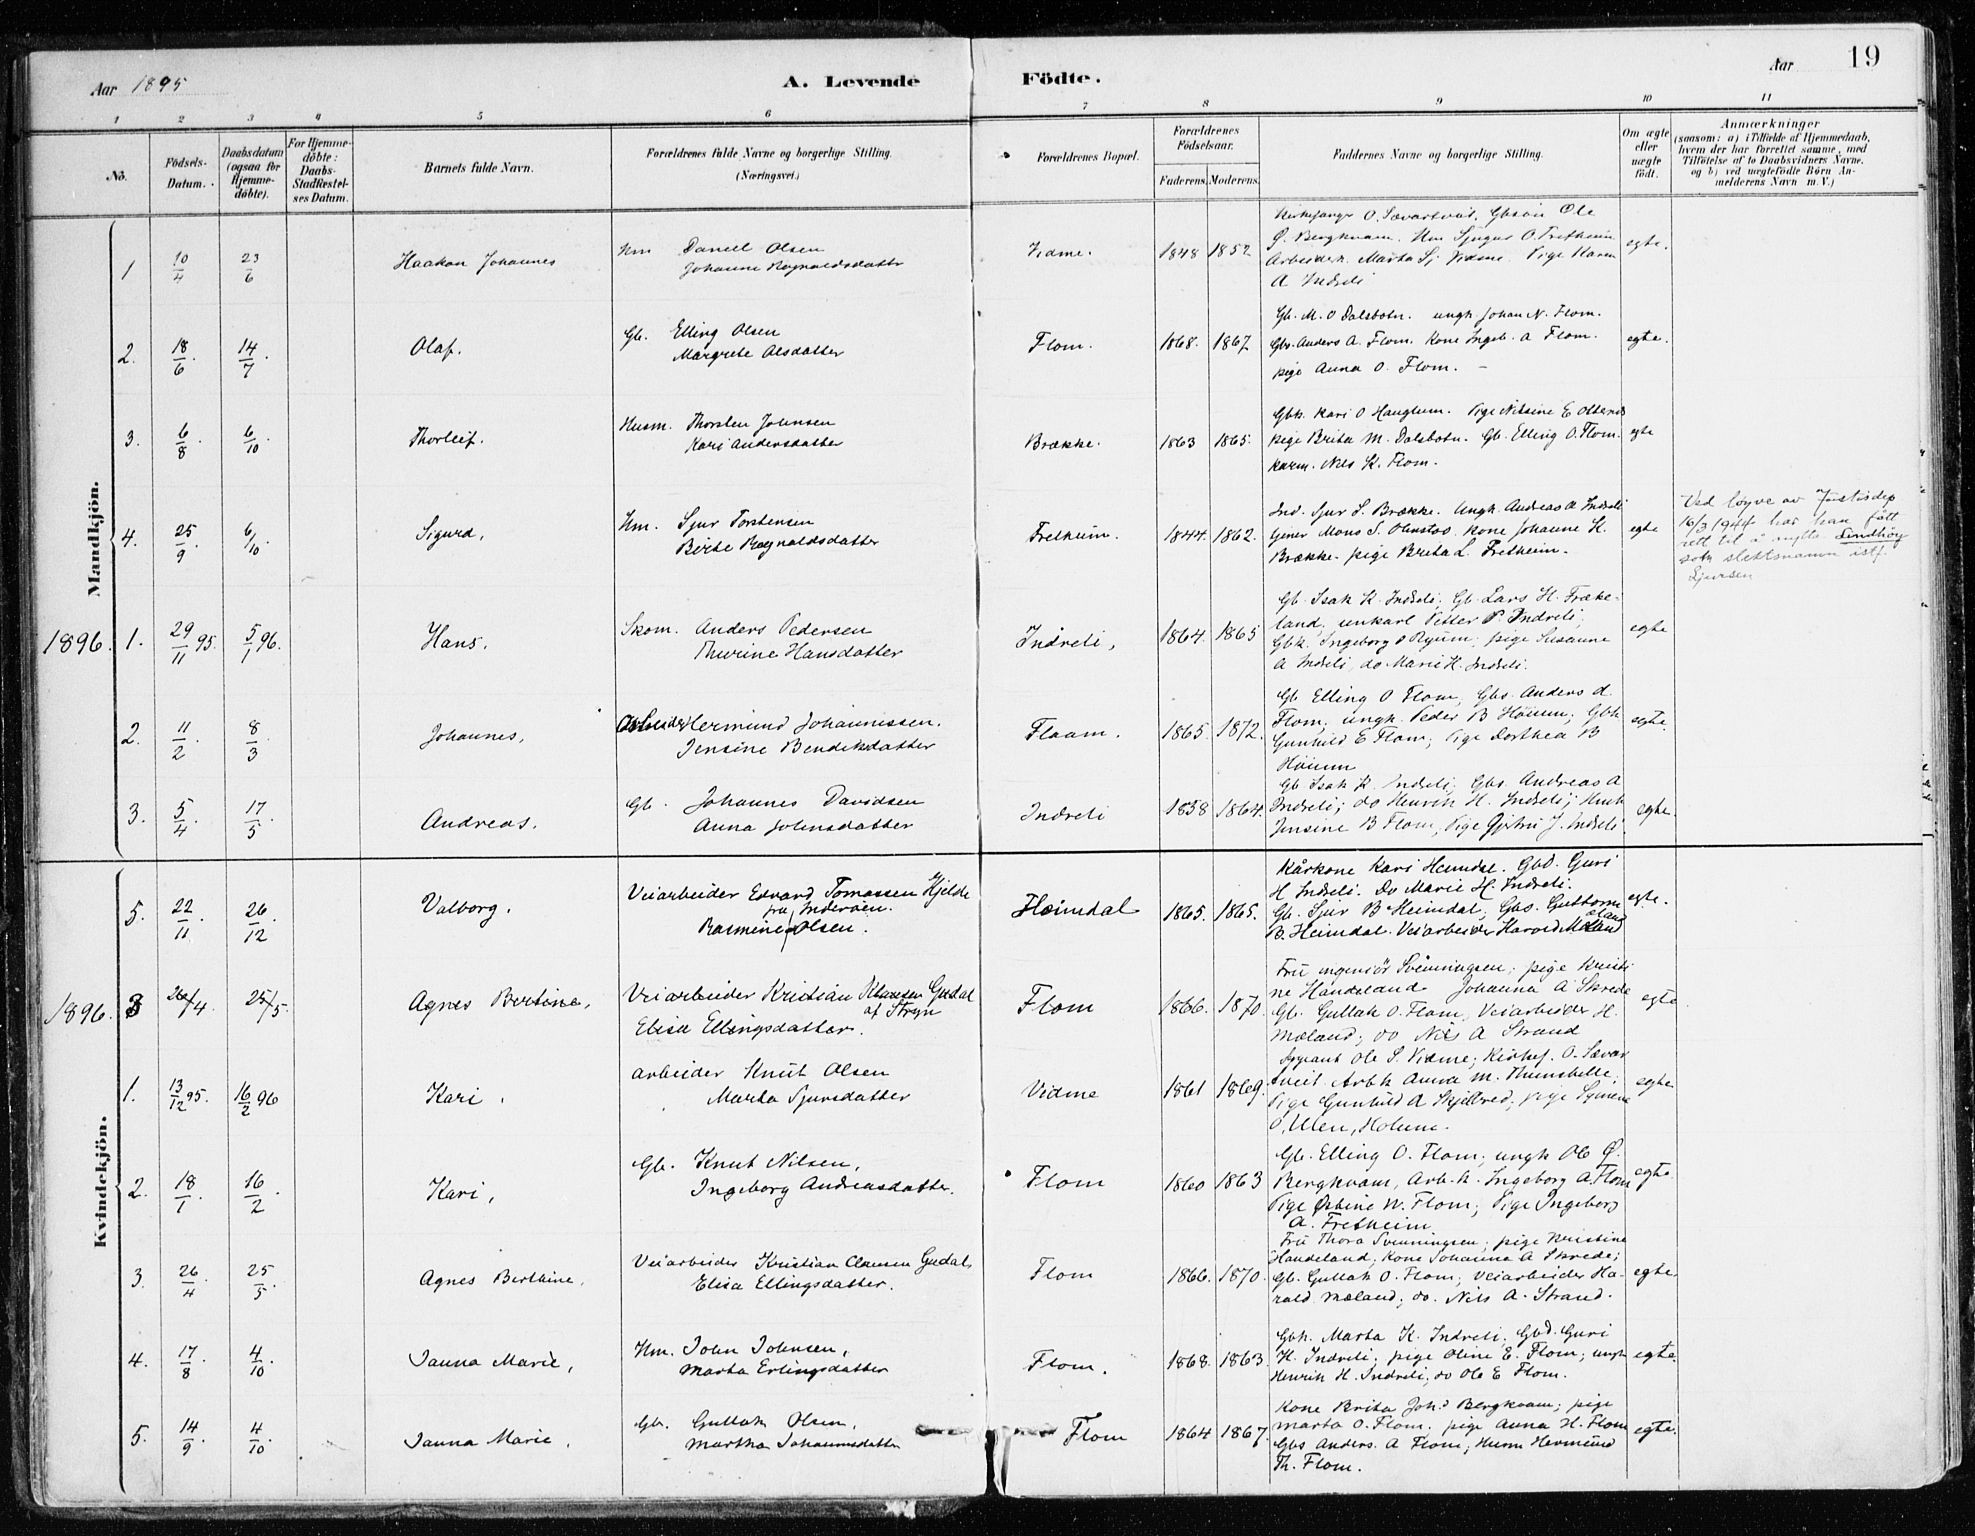 Aar 1895
A. Levende Födte.
Aar
19
1 2 3 4 5 6 7 8 9 10 11
No.
Födsels-Datum.
Daabsdatum (ogsaa for Hjemmedöbte).
For Hjemmedöbte: Daabs-Stadfæstelses Datum.
Barnets fulde Navn.
Forældrenes fulde Navne og borgerlige Stilling. (Næringsvei.)
Forældrenes Bopæl.
Forældrenes Födselsaar. Faderens. Moderens.
Faddernes Navne og borgerlige Stilling.
Om ægte eller uægte födt.
Anmærkninger
(saasom: a) i Tilfælde af Hjemmedaab, hvem der har forrettet samme, med Tilföielse af to Daabsvidners Navne. og b) ved uægtefödte Börn Anmelderens Navn m. V.)
Mandkjön.
1 10/4 23/6 Haakon Johannes Hm Daniel Olsen
Johanne Rognaldsdatter Vidme. 1848 1852 egte.
Kirkesanger O. Sævartveit, Gbsön Ole
Ø. Bergkvam. Hm Sjugur O. Fretheim
Arbeiderk. Marta Sj. Vidme. Pige Karen
A Indreli
2. 18/6. 14/7. Olaf. Gb. Elling Olsen
Margrete Olsdatter Flom. 1868. 1867 egte.
Gb. M. O Dalsbotn. ungk. Johan N. Flom.
Gbs. Anders A. Flom. Kone Ingeb. A Flom.
pige Anna O. Flom. —
3. 6/8. 6/10. Thorleif. Husm. Thorsten Johnsen
Kari Andersdatter Brække. 1863 1865. egte
Gbk. Kari O Hauglum. Pige Nilsine E Otternes
pige Brita M. Dalsbotn. Gb. Elling O. Flom.
karm. Nils K. Flom.
4. 25/9. 6/10 Sigurd, Hm. Sjur Torstensen
Birte Rognaldsdatter Fretheim. 1844. 1862. egte
Ind. Sjur S. Brække. Ungk. Andreas A Indreli
tjener Mons S. Olmstos. kone Johanne K.
Brække. pige Brita L. Fretheim.
Ved løyve av Justisdep
16/3 1944 har han fått
rett til å nytte Lindhöy
som slektsnamn istf.
Sjursen
1896. 1. 29/11 95. 5/1 96. Hans. Skom. Anders Pedersen
Thurine Hansdatter Indreli, 1864. 1865 egte
Gb. Isak K. Indreli; Gb. Lars H. Fræke-
land, unkarl Petter P. Indreli;
Gbk. Ingeborg O Ryum; pige Susanne
A Indreli, do Marie H. Indreli.
2. 11/2 8/3 Johannes, Arbeider Hermund Johannessen.
Jensine Bendiksdatter Flaam. 1865. 1872. egte.
Gb. Elling O Flom, Gbs. Anders A.
Flom, ungk. Peder B Höium; Gbk
Gunhild E Flom; Pige Dorthea B
Höium
3. 5/4. 17/5. Andreas. Gb. Johannes Davidsen
Anna Johnsdatter Indreli 1858 1864. egte.
Gb. Isak K. Indreli; Gbs. Andreas A
Indreli; do Henrik H. Indreli; Hmk
Jensine B Flom, Pige Gjertru J. Indreli
Kvindekjön.
5. 22/11. 26/12 Valborg. Veiarbeider Edvard Tomassen Hjelde
fra Inderöen.
Rasmine Olsen. Heimdal 1865. 1865. egte.
Kårkone Kari Heimdal. Gbd. Guri
H Indreli. Do Marie H. Indreli.
Gb. Sjur B Heimdal; Gbs. Guttorm
B. Heimdal. Veiarbeider Harald Mæland
1896. 3 26/4 25/5 Agnes Bertine, Veiarbeider Kristian Klausen Gudal
af Stryn
Elisa Ellingsdatter. Flom 1866. 1870. egte
Fru ingeniör Svenningsen; pige Kristi-
ne Handeland Johanna A Skrede
Gb. Gullak O. Flom, Veiarbeider H.
Mæland; do Nils A Strand
1. 13/12 95. 16/2 96 Kari. Arbeider Knut Olsen
Marta Sjursdatter Vidme 1861 1869. egte
Aspirant Ole S. Vidme; Kirkes. O. Sævar-
tveit. Arbk Anna M. Thunshelle;
Pige Gunhild A Skjelbred; pige Synneva
O. Uleu, Holum.
2. 18/1. 16/2. Kari, Gb. Knut Nilsen,
Ingeborg Andreasdatter. Flom 1860 1863 egte.
Gb. Elling O. Flom; ungk Ole Ø.
Bergkvam, Arb.k. Ingeborg A. Flom
Pige Østine N. Flom; Pige Ingeborg
A. Fretheim
3. 26/4. 25/5. Agnes Berthine. Veiarbeider Kristian Clausen Gudal,
Elisa Ellingsdatter. Flom 1866. 1870. egte.
Fru Thora Svenningsen; pige Kristine
Handeland; Kone Johanna A Skrede;
Gb. Gullak O. Flom; Veiarbeider Ha-
rald Mæland; do. Nils A. Strand.
4. 17/8. 4/10. Janna Marie, Hm. John Johnsen,
Marta Erlingsdatter Flom. 1868. 1863. egte.
Gbk. Marta K. Indreli. Gbd. Guri
H. Indreli; pige Oline E. Flom; ungk
Henrik H. Indreli; do Ole E Flom.
5. 14/9. 4/10. Janna Marie. Gb. Gullak Olsen,
Martha Johannesdatter Flom 1864 1867. egte.
Kone Brita Joh.s Bergkvam; pige
Marta O. Flom; pige Anna H. Flom
Gbs Anders A Flom; Husm Hermund
Th. Flom.